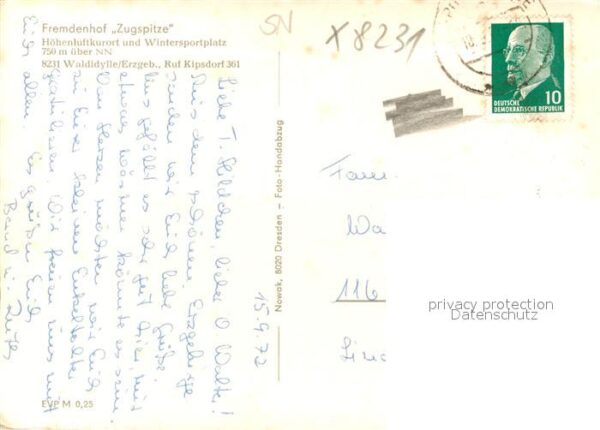 Fremdenhof „Zugspitze"
Höhenluftkurort und Wintersportplatz
750 m über NN
8231 Waldidylle/Erzgeb., Ruf Kipsdorf 361
SN
X 8231
10
DEUTSCHE
DEMOKRATISCHE REPUBLIK
15.9.72
Liebe T. Hildchen, lieber O Walter!
Aus dem schönen Erzgebirge
senden wir Euch liebe Grüße.
Uns gefällt es sehr gut hier, nur
etwas wärmer könnte es sein.
Von Herzen möchten wir Euch
zu Eurer kleinen Enkeltochter
gratulieren. Wir freuen uns mit
Euch allen. Es grüßen Euch
Bernd u.
Nowak, 8020 Dresden – Foto-Handabzug
Fam
Wa
116
Lin
privacy protection
Datenschutz
EVP M 0,25